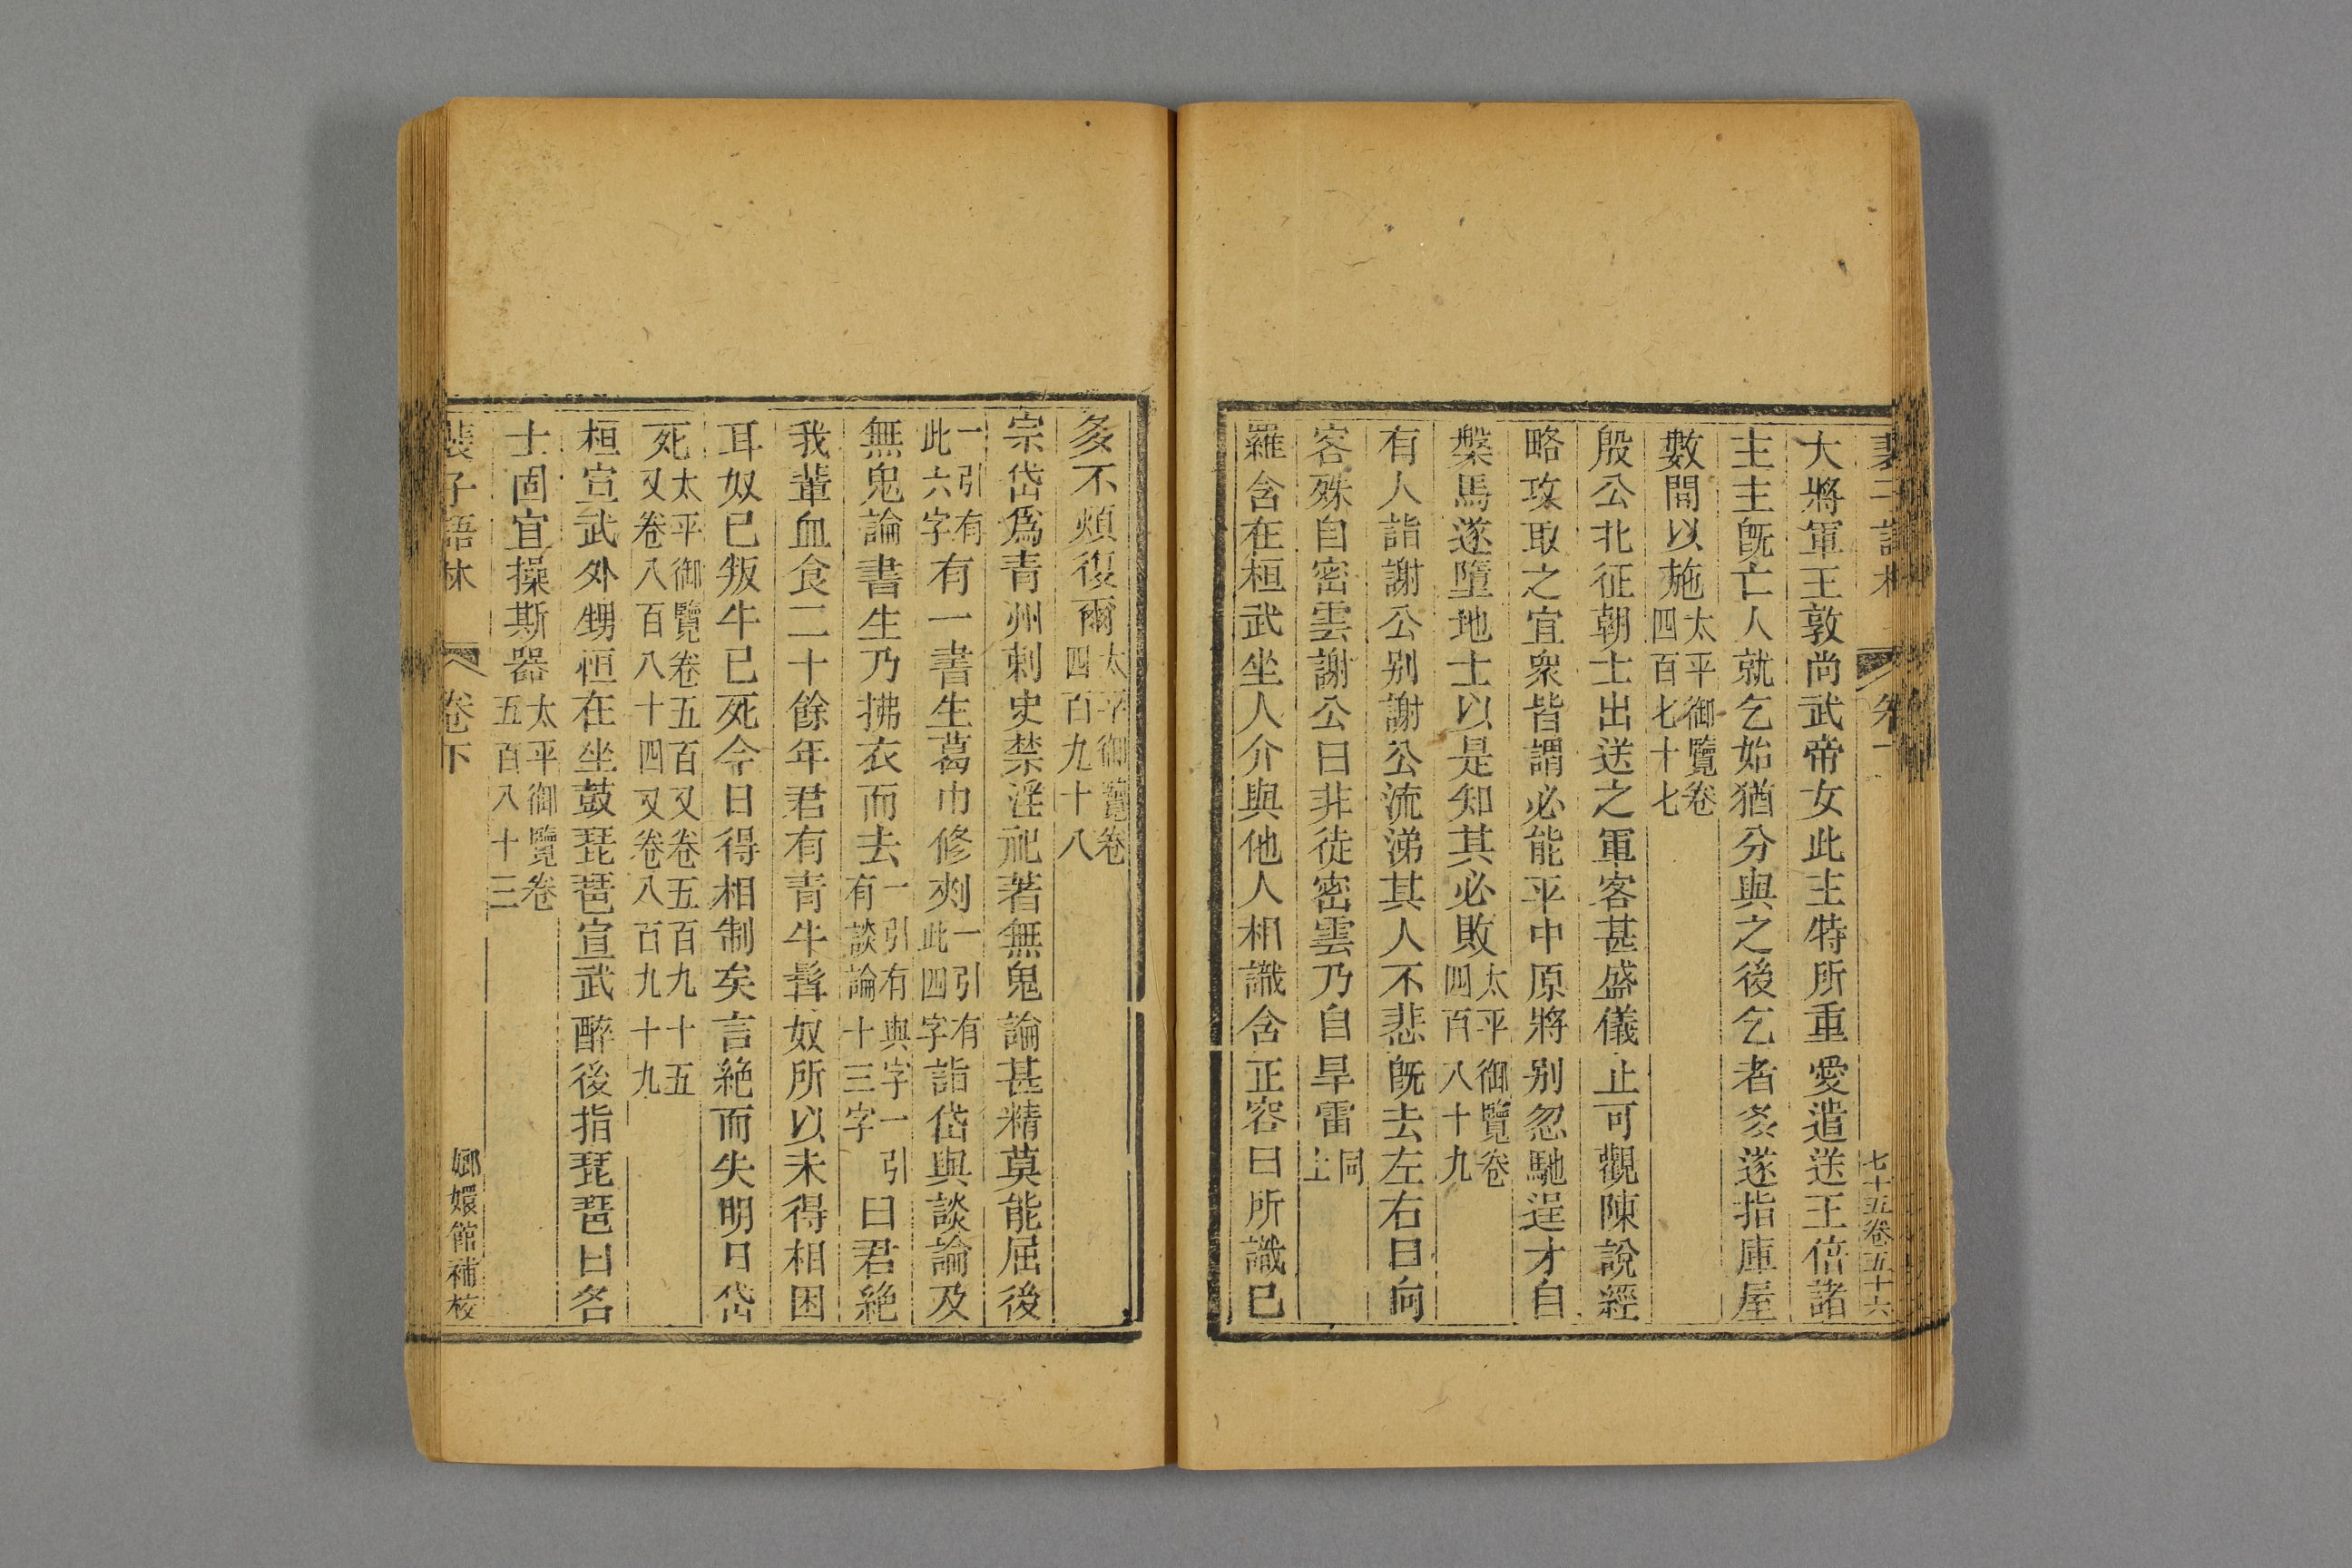 七十五卷五十六
大將軍王敦尚武帝女此主特所重愛遣送王倍諸
主主旣亡人就乞始猶分與之後乞者多遂指庫屋
數間以施太平御覽卷四百七十七
殷公北征朝士出送之軍容甚盛儀止可觀陳說經
略攻取之宜衆皆謂必能平中原將别忽馳逞才自
槃馬遂墮地士以是知其必敗太平御覽卷四百八十九
有人詣謝公别謝公流涕其人不悲旣去左右曰向
客殊自密雲謝公曰非徒密雲乃自旱雷同上
羅含在桓武坐人介與他人相識含正容曰所識已
多不煩復爾太平御覽卷四百九十八
宗岱爲青州刺史禁淫祀著無鬼論甚精莫能屈後
一引有此六字有一書生葛巾修刺一引有此四字詣岱與談論及
無鬼論書生乃拂衣而去一引有與字一引有談論十三字曰君絶
我輩血食二十餘年君有青牛髯奴所以未得相困
耳奴已叛牛已死今日得相制矣言絶而失明日岱
死太平御覽卷五百又卷五百九十五又卷八百八十四又卷八百九十九
桓宣武外甥恒在坐鼓琵琶宣武醉後指琵琶曰名
士固宜操斯器太平御覽卷五百八十三
裴子語林 卷下 嫏嬛館補校